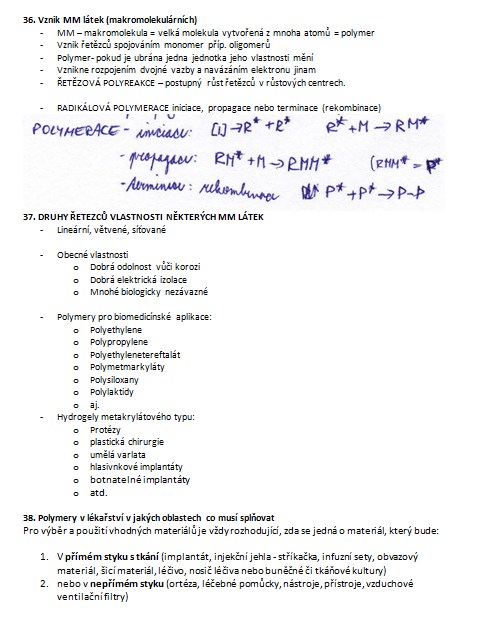 36. Vznik MM látek (makromolekulárních)
- MM – makromolekula = velká molekula vytvořená z mnoha atomů = polymer
- Vznik řetězců spojováním monomer příp. oligomerů
- Polymer- pokud je ubrána jedna jednotka jeho vlastnosti mění
- Vznikne rozpojením dvojné vazby a navázáním elektronu jinam
- ŘETĚZOVÁ POLYREAKCE – postupný růst řetězců v růstových centrech.
- RADIKÁLOVÁ POLYMERACE iniciace, propagace nebo terminace (rekombinace)
POLYMERACE - iniciace: [I] → R* + R* R* + M → RM*
- propagace: RM* + M → RMM* (RMM* = P*
- terminace: rekombinace P* + P* → P-P
37. DRUHY ŘETEZCŮ VLASTNOSTI NĚKTERÝCH MM LÁTEK
- Lineární, větvené, síťované
- Obecné vlastnosti
o Dobrá odolnost vůči korozi
o Dobrá elektrická izolace
o Mnohé biologicky nezávazné
- Polymery pro biomedicínské aplikace:
o Polyethylene
o Polypropylene
o Polyethylenetereftalát
o Polymetmarkyláty
o Polysiloxany
o Polylaktidy
o aj.
- Hydrogely metakrylátového typu:
o Protézy
o plastická chirurgie
o umělá varlata
o hlasivnkové implantáty
o botnatelné implantáty
o atd.
38. Polymery v lékařství v jakých oblastech co musí splňovat
Pro výběr a použití vhodných materiálů je vždy rozhodující, zda se jedná o materiál, který bude:
1. V přímém styku s tkání (implantát, injekční jehla - stříkačka, infuzní sety, obvazový
materiál, šicí materiál, léčivo, nosič léčiva nebo buněčné či tkáňové kultury)
2. nebo v nepřímém styku (ortéza, léčebné pomůcky, nástroje, přístroje, vzduchové
ventilační filtry)